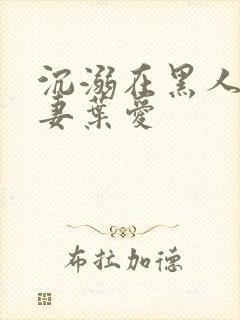 沉溺在黑人
妻葉愛
布拉加德